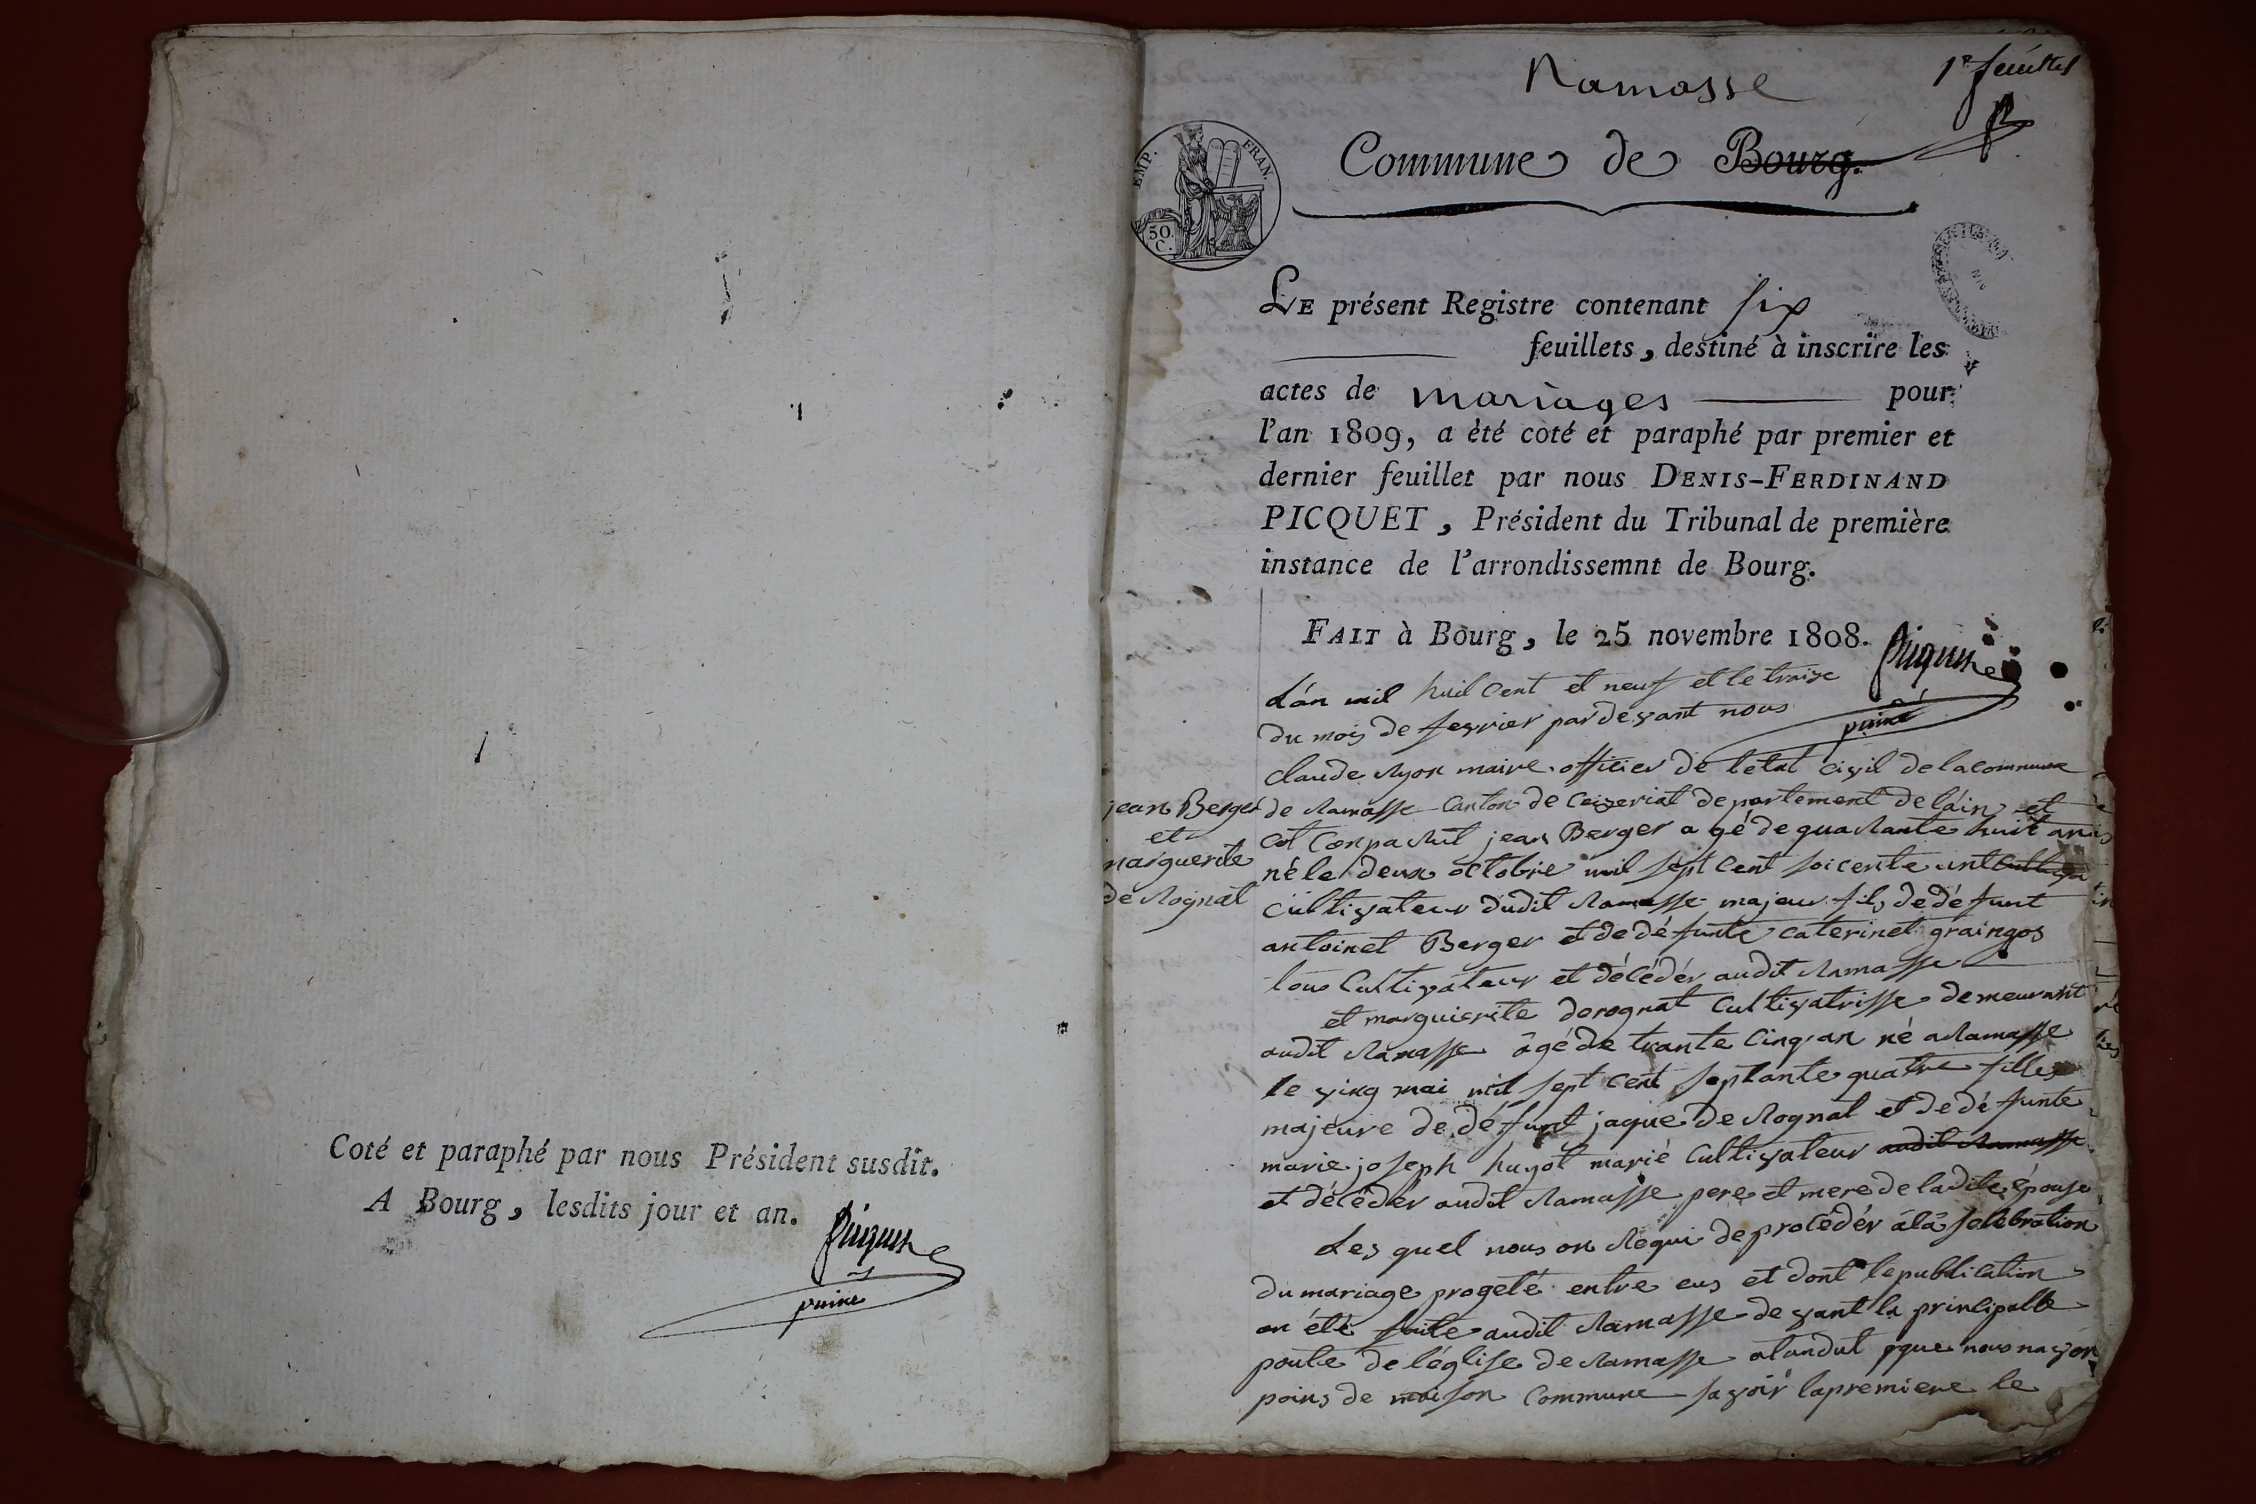 Coté et paraphé par nous Président susdit.
A Bourg, lesdits jour et an.
Picquet
puiné
1er feuillet
Ramasse
Commune de Bourg.
EMP. FRAN.
50.
C.
LE présent Registre contenant six
feuillets, destiné à inscrire les
actes de mariages pour
l'an 1809, a été coté et paraphé par premier et
dernier feuillet par nous DENIS-FERDINAND
PICQUET, Président du Tribunal de première
instance de l'arrondissemnt de Bourg.
FAIT à Bourg, le 25 novembre 1808.
Picquet
puiné
jean Berger
et
marguerite
de Rognat
L'án mil huil cent et neuf et le traize
du mois de fevrier par devant nous
claude Ryon maire officier de l'etat civil de la commune
de Ramasse canton de ceizeriat departement de láin et
cot conparut jean Berger agé de quarante huit ans
né le deux octobre mil sept cent soicente un
cultivateur dudit Ramasse majeur fils de défunt
antoinet Berger et de défunte caterinet graingos
tous cultivateur et décédér audit Ramasse
et marguierite derognat cultivatrisse demeurant
audit Ramasse âgé de trante cinq an né a Ramasse
le ving mai mil sept cent septante quatre fille
majeure de défunt jaque de Rognat et de défunte
marie joseph huyot marié cultivateur audit Ramasse
et décédér audit Ramasse pere et mere de la dite épouse
Les quel nous on Requi de procédér á lá selébration
du mariage progeté entre eus et dont le publication
on été faite audit Ramasse devant la principalle
porte de léglise de Ramasse atandut que nous navon
poins de maison commune savoir la premiere le